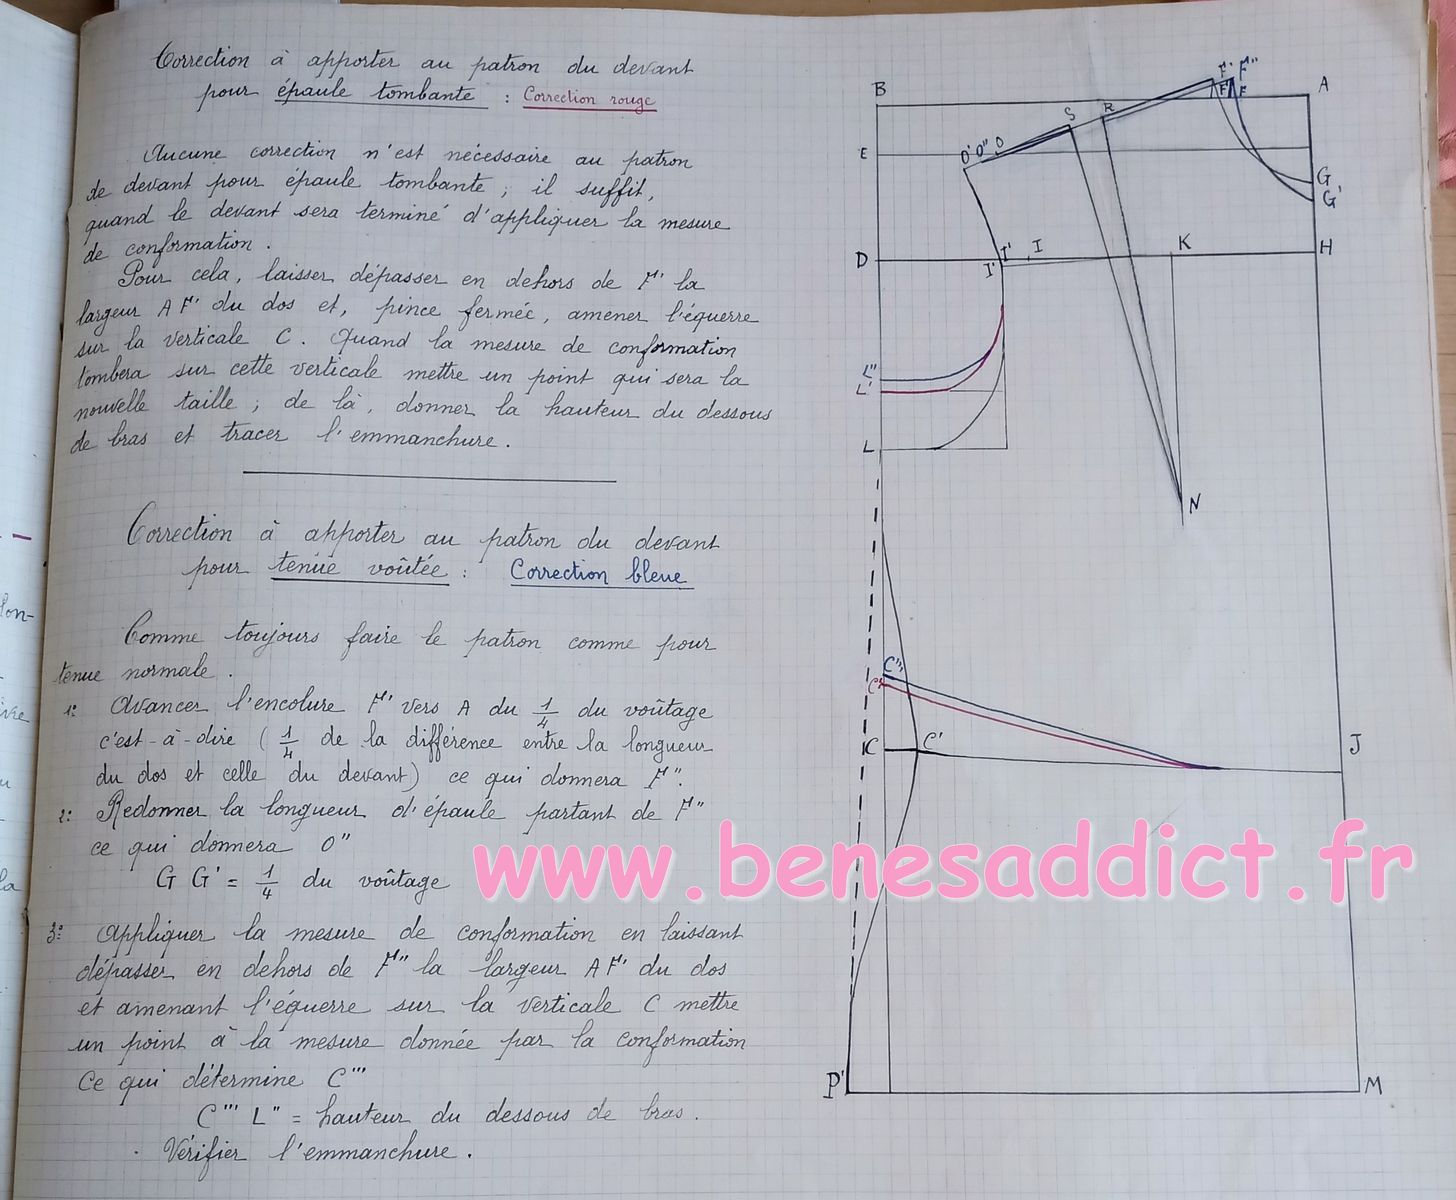 Correction à apporter au patron du devant
pour épaule tombante : Correction rouge
Aucune correction n'est nécessaire au patron
de devant pour épaule tombante ; il suffit,
quand le devant sera terminé d'appliquer la mesure
de conformation.
Pour cela, laisser dépasser en dehors de F' la
largeur A F' du dos et, pince fermée, amener l'équerre
sur la verticale C. Quand la mesure de conformation
tombera sur cette verticale mettre un point qui sera la
nouvelle taille ; de là, donner la hauteur du dessous
de bras et tracer l'emmanchure.
Correction à apporter au patron du devant
pour tenue voûtée : Correction bleue
Comme toujours faire le patron comme pour
tenue normale.
1º Avancer l'encolure F' vers A du 1/4 du voûtage
c'est-à-dire (1/4 de la différence entre la longueur
du dos et celle du devant) ce qui donnera F".
2º Redonner la longueur d'épaule partant de F"
ce qui donnera O"
G G' = 1/4 du voûtage
3º Appliquer la mesure de conformation en laissant
dépasser en dehors de F" la largeur A F' du dos
et amenant l'équerre sur la verticale C mettre
un point à la mesure donnée par la conformation
Ce qui détermine C'''
C''' L" = hauteur du dessous de bras.
Vérifier l'emmanchure.
B
A
F' F"
F F
S
R
E
O' O" O
G
G'
D
I'
I'
I
K
H
L"
L'
L
N
C'''
C"
C
C'
J
P'
M
www.benesaddict.fr